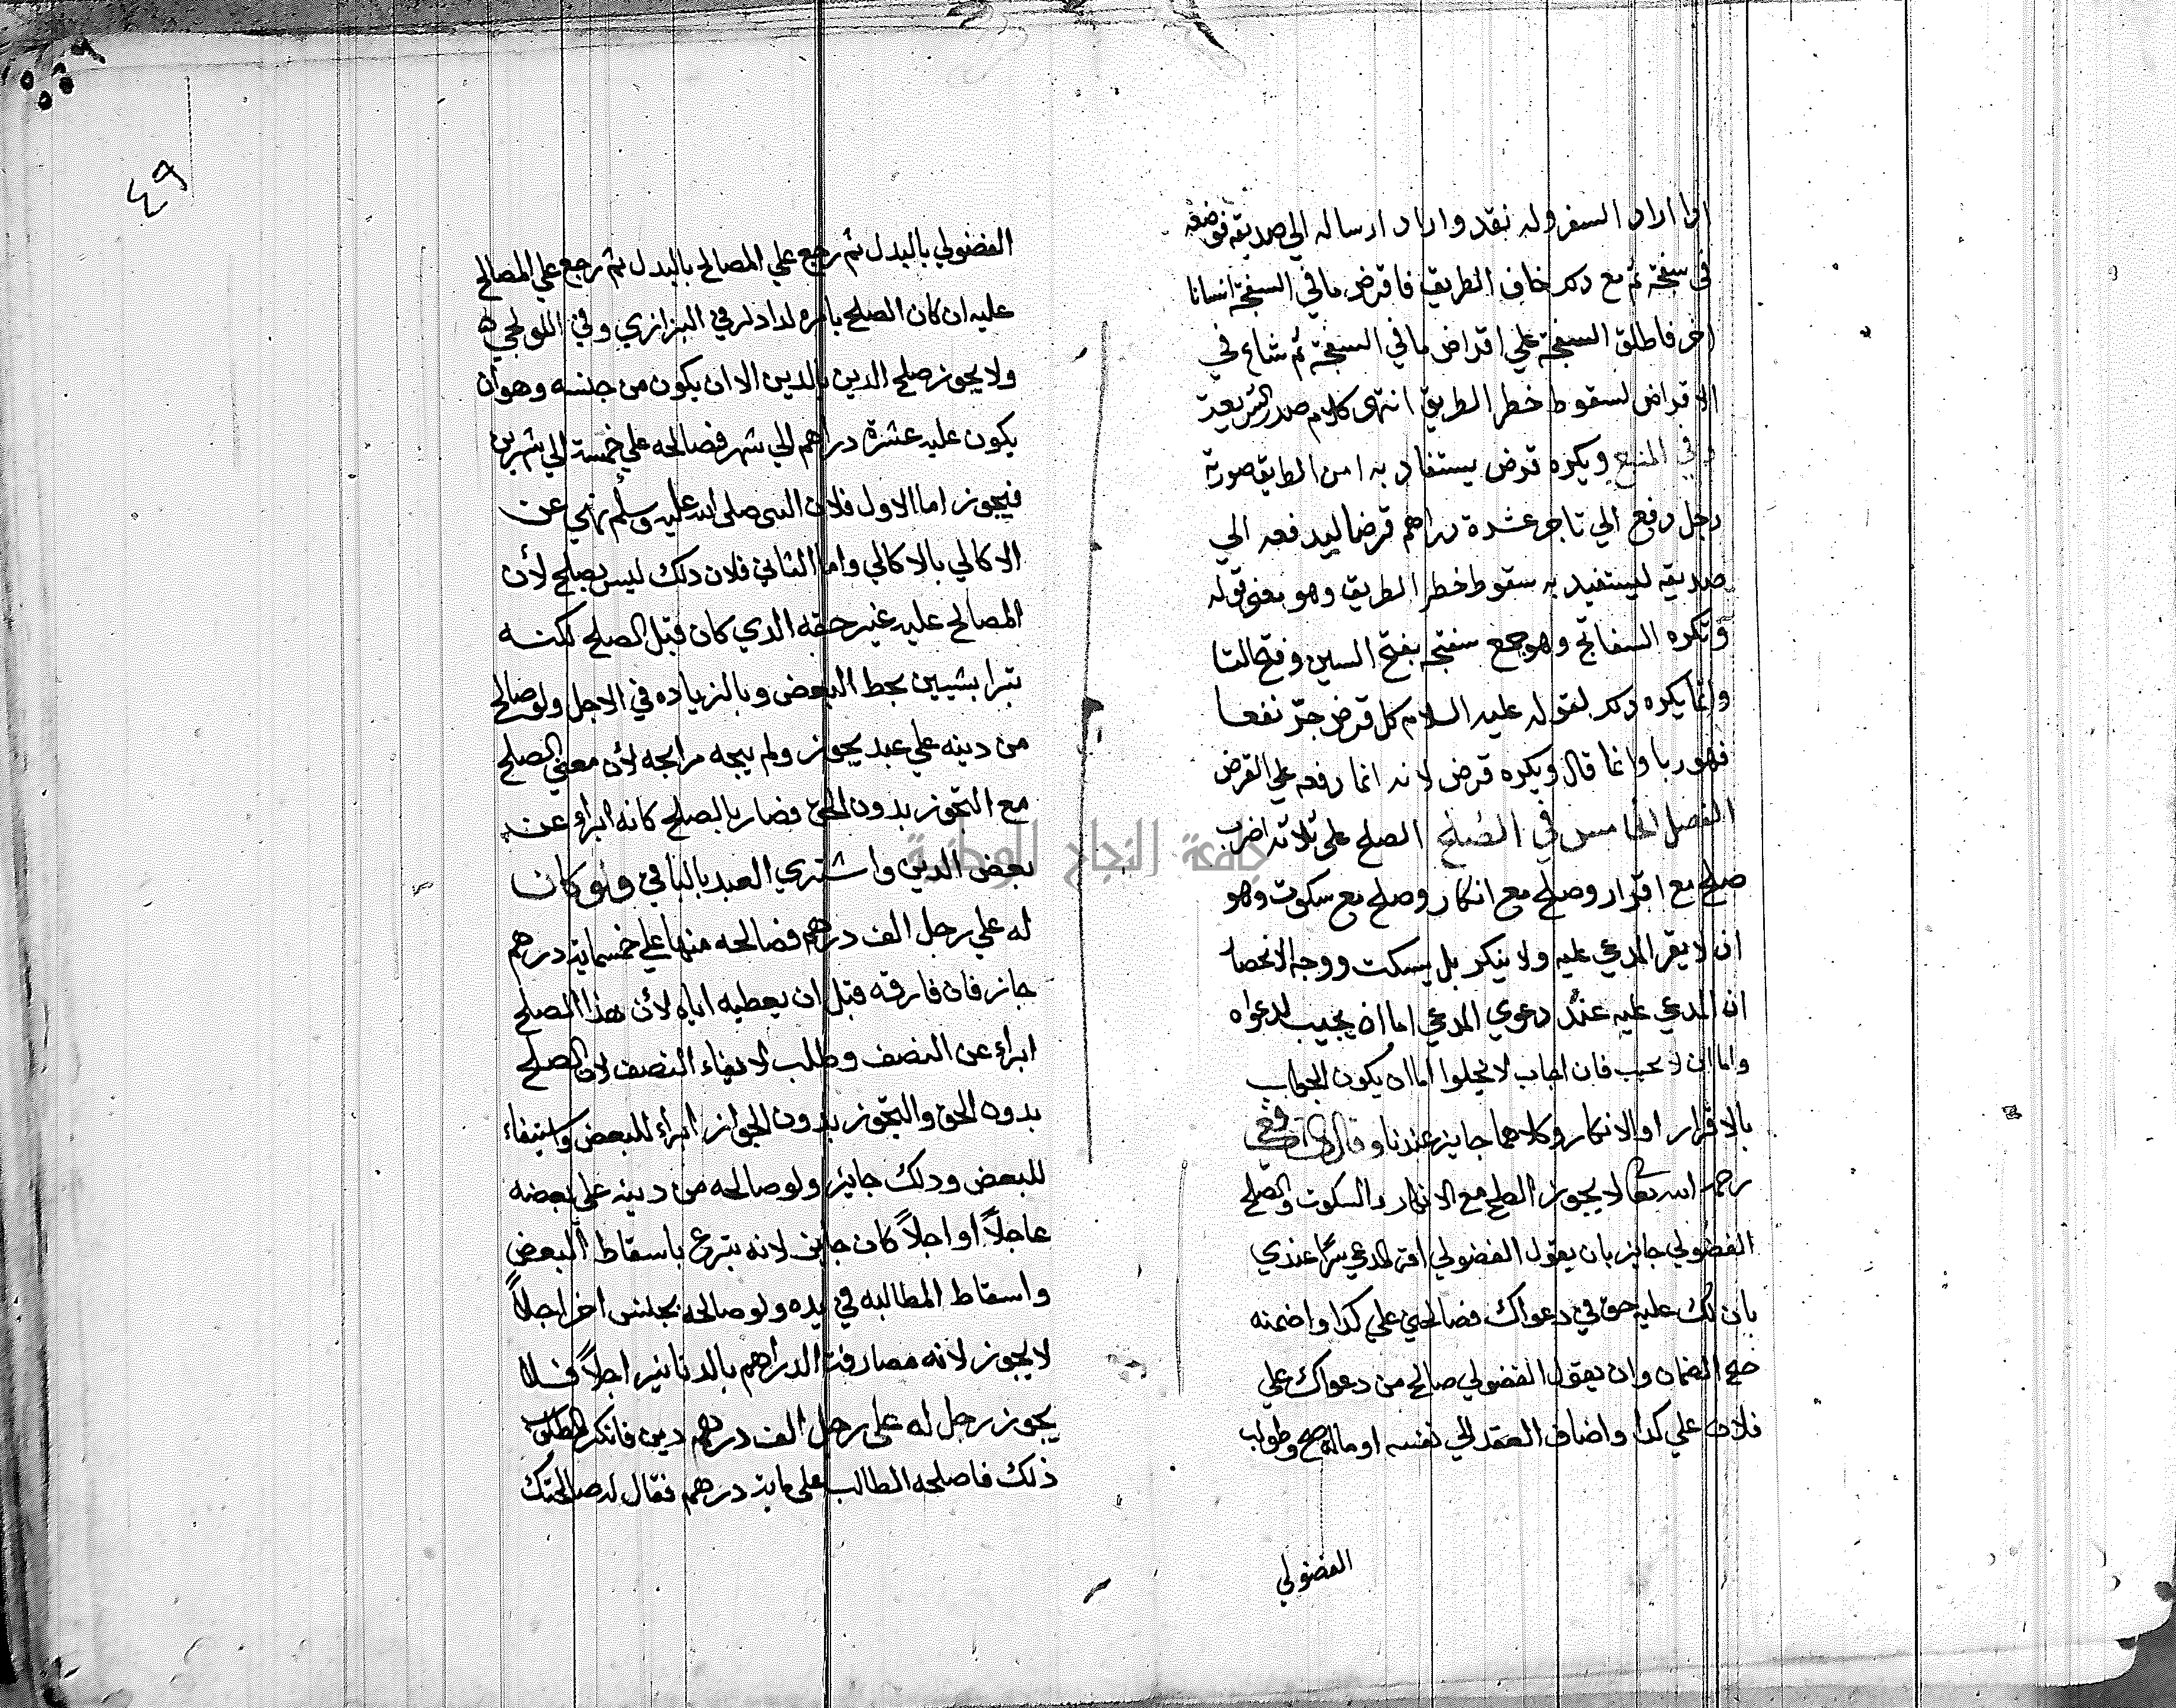 اذا اراد السفر وله نقد واراد ارساله الي صديقه فوضعه
في سفتجة ثم مع ذكر خاف الطريق فاقرض ما في السفتجة انسانا
اخر فاطلق السفتجة علي اقراض ما في السفتجة ثم شاع في
الاقراض لسقوط خطر الطريق انتهى كلام صدر الشريعة
وفي المنبع ويكره قرض يستفاد به امن الطريق صورته
رجل دفع الي تاجر عشرة دراهم قرضا ليدفعه الي
صديقه ليستفيد به سقوط خطر الطريق وهو معنى قوله
وتكره السفاتج وهو جمع سفتجه بفتح السين وفتح التا
وانما يكره ذكر لقوله عليه السلام كل قرض جرّ نفعا
فهو ربا وانما قال ويكره قرض لانه انما دفعه علي القرض
الفصل الخامس في الصلح الصلح على ثلاثه اضرب
صلح مع اقرار وصلح مع انكار وصلح مع سكوت وهو
ان لا يقر المدعي عليه ولا ينكر بل يسكت ووجه الانحصار
ان المدعي عليه عند دعوي المدعي اما ان يجيب لدعواه
واما ان لا يجيب فان اجاب لا يخلوا اما ان يكون الجواب
بالاقرار او الانكار وكلاهما جايز عندنا وقال الشافعي
رحمه الله تعالى لا يجوز الصلح مع الانكار والسكوت والصلح
الفضولي جايز بان يقول الفضولي اقر المدعي سرًا عندي
بان لك عليه حق في دعواك فصالحني علي كذا واضمنه
صح الضمان وان يقول الفضولي صالح من دعواك علي
فلان علي كذا واضاف العقد الي نفسه او ماله صح وطولب
الفضولي
٤٩
الفضولي بالبدل ثم رجع علي المصالح بالبدل ثم رجع علي المصالح
عليه ان كان الصلح بامره لذا ذكر في البزازي وفي
ولا يجوز صلح الدين بالدين الا ان يكون من جنسه وهو ان
يكون عليه عشرة دراهم الي شهر فصالحه علي خمسة الي شهرين
فيجوز اما الاول فلان النبى صلى الله عليه وسلم نهي عن
الاكالي بالاكالي واما الثاني فلان ذلك ليس بصلح لأن
المصالح عليه غير حقه الذي كان قبل الصلح لكنه
تبرا بشيين بحط البعض وبالزياده في الاجل ولو صالح
من دينه علي عبد يجوز ولم يبجه مرابحه لأن معنى الصلح
مع التجوز بدون الحق فصار بالصلح كانه ابراء عن
بعض الدين واشتري العبد بالباقي ولو كان
له علي رجل الف درهم فصالحه منها علي خمسماية درهم
جاز فان فارقه قبل ان يعطيه اياه لأن هذا الصلح
ابراء عن النصف وطلب لايفاء النصف لان الصلح
بدون الحق والتجوز بدون الجواز ابراء للبعض واستيفاء
للبعض وذلك جايز ولو صالحه من دينه علي بعضه
عاجلاً او اجلاً كان جايز لانه تبرع باسقاط البعض
واسقاط المطالبه في يده ولو صالحه بجنس اخر اجلاً
لا يجوز لانه مصارفة الدراهم بالدنانير اجلاً فلا
يجوز رجل له على رجل الف درهم دين فانكر المطلوب
ذلك فاصلحه الطالب على ماية درهم فقال له صالحتك